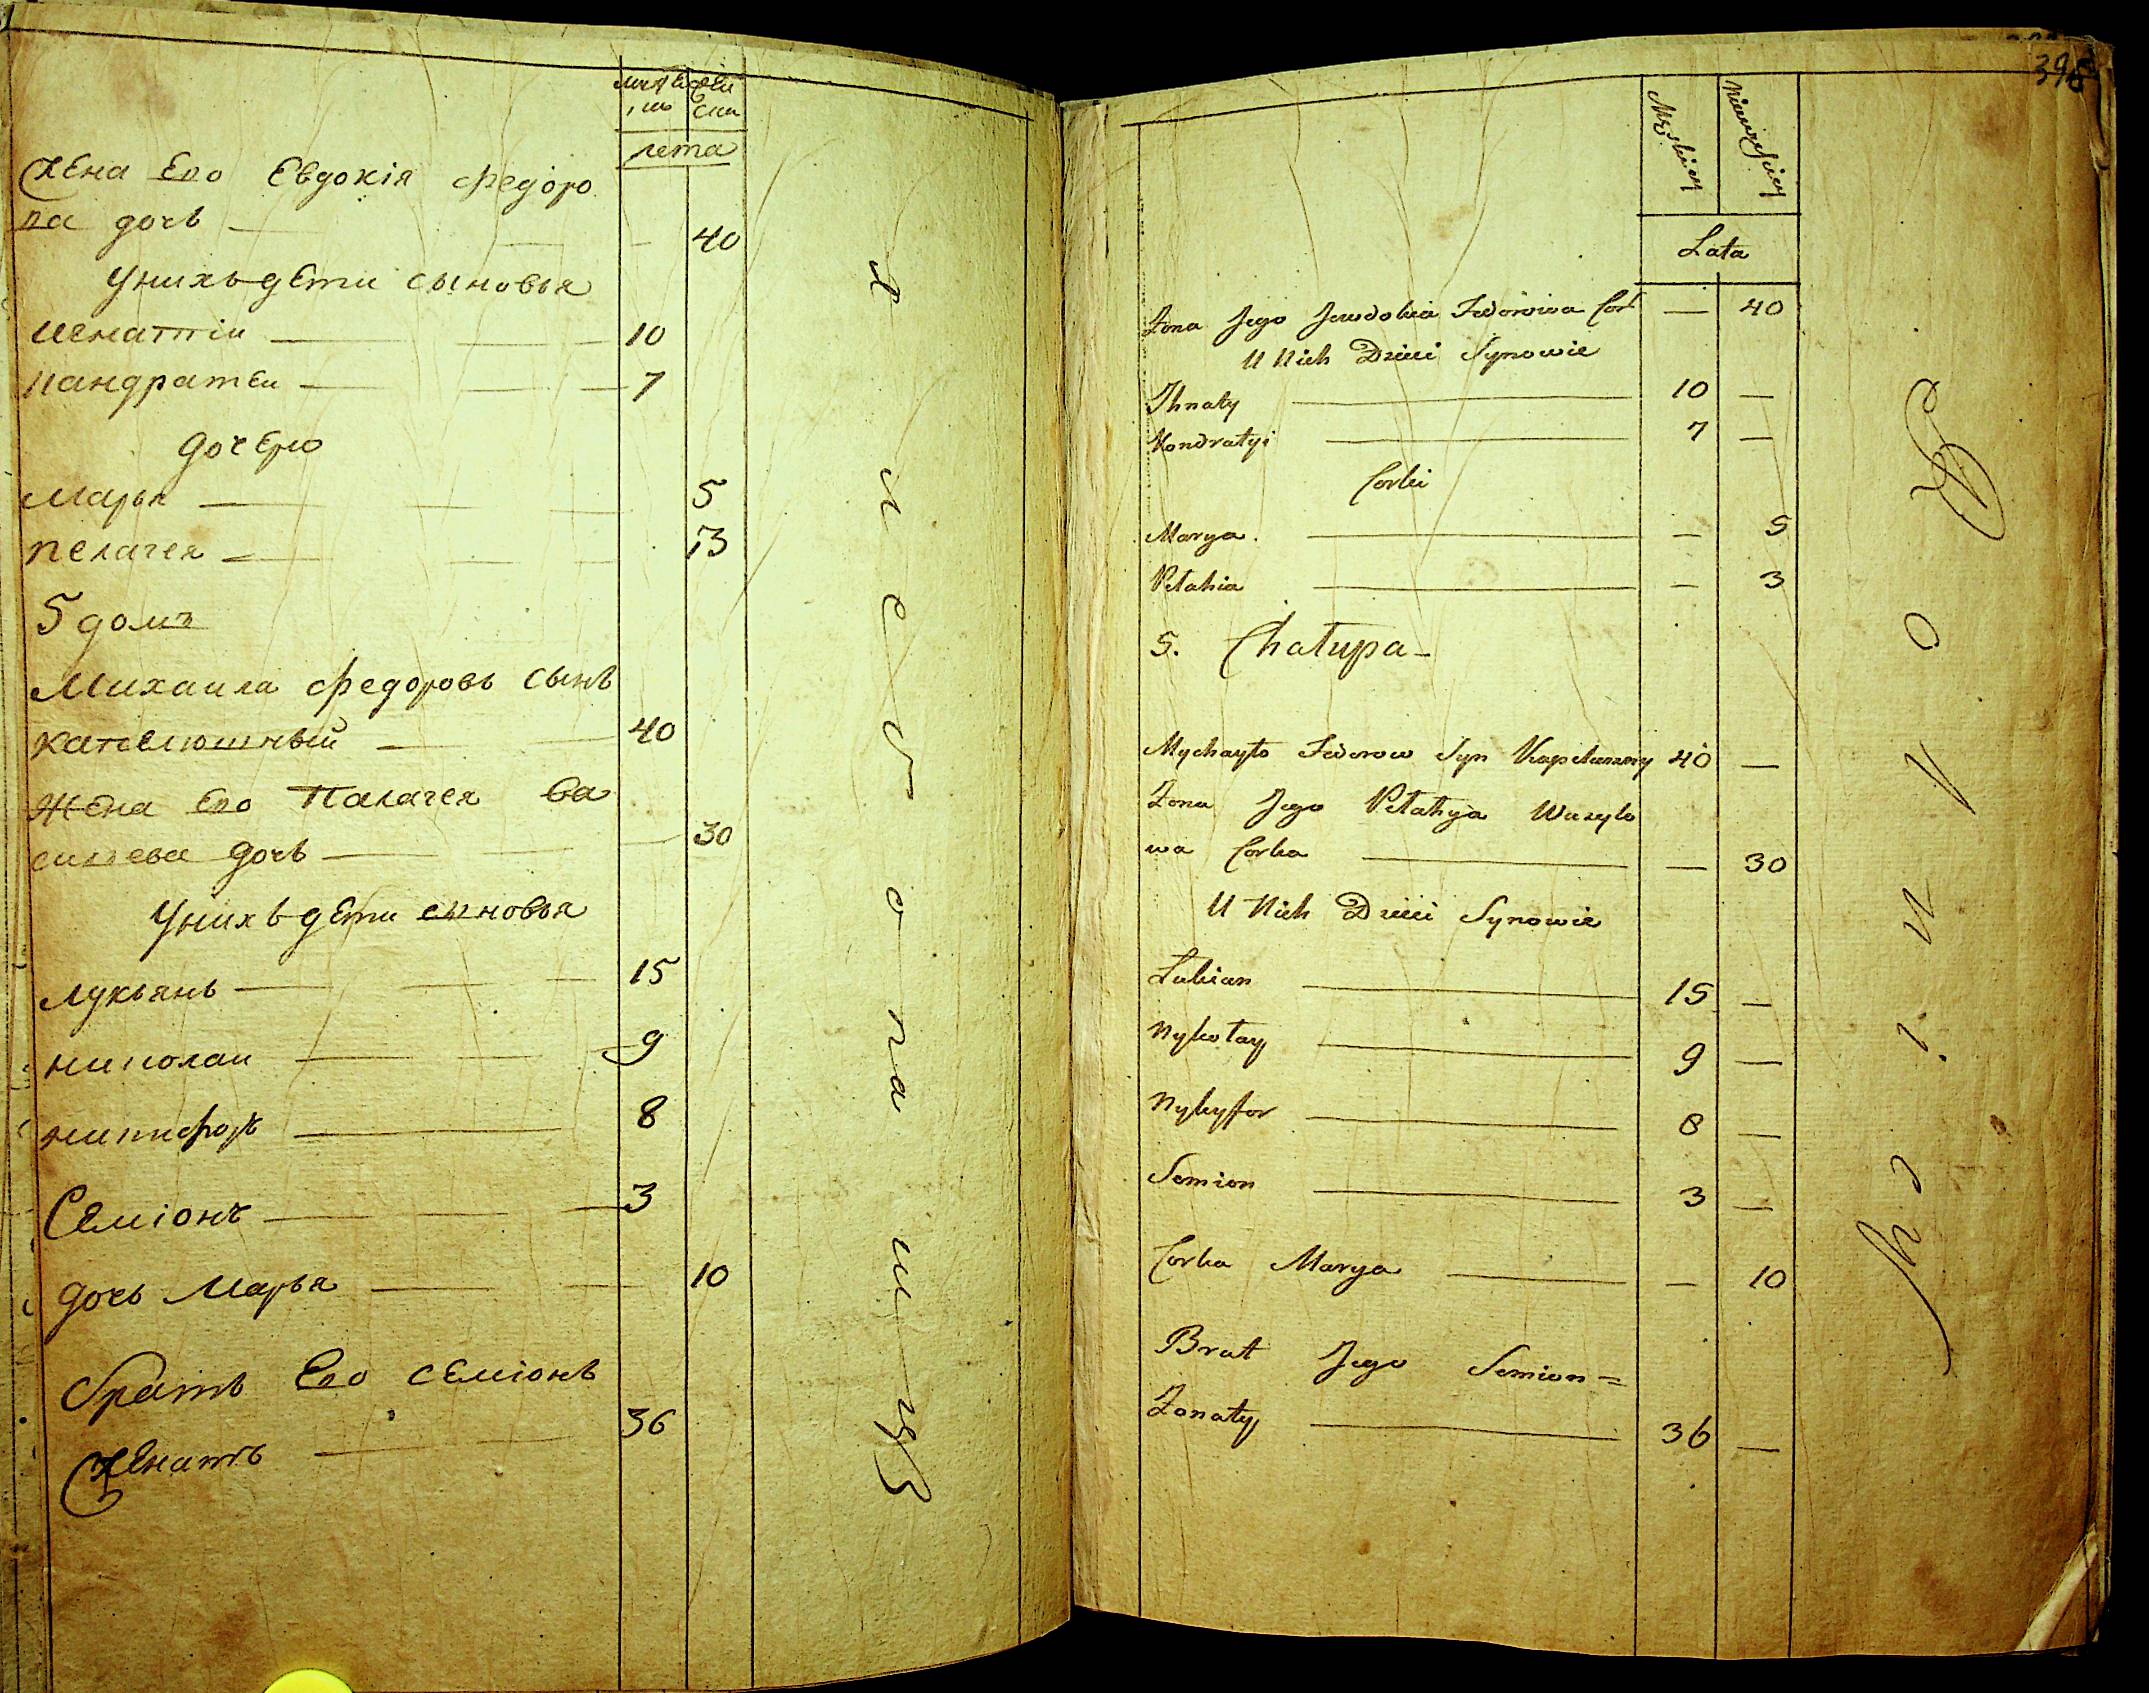 лета
Жена Его Евдокія Федоро
ва дочь — — 40
Унихъ дети сыновья
Игнатіи — 10
Кандратеи — 7
Дочерю
Марья — 5
Пелагея — 13
5 домъ
Михаила Федоровъ сынъ
— 40
Жена Его Палагея Ва
силева дочь — 30
Унихъ дети сыновья
Лукьянъ — 15
Николаи — 9
Никифоръ — 8
Семіонъ — 3
дочь Марья — 10
братъ Его Семіонъ
Женатъ — 36
395
Męzkiey
Niewieściey
Lata
Żona Jego Jewdokia Fedorowa Cor — 40
U Nich Dzieci Synowie
Ihnaty — 10 —
Kondratyi — 7 —
Corki
Marya — — 5
Pełahia — — 3
5. Chałupa
Mychayło Fedorow Syn 40 —
Żona Jego Pełahya Wasylo
wa Corka — — 30
U Nich Dzieci Synowie
Łukian — 15 —
Nykołay — 9 —
Nykyfor — 8 —
Semion — 3 —
Corka Marya — — 10
Brat Jego Semion =
Żonaty — 36 —